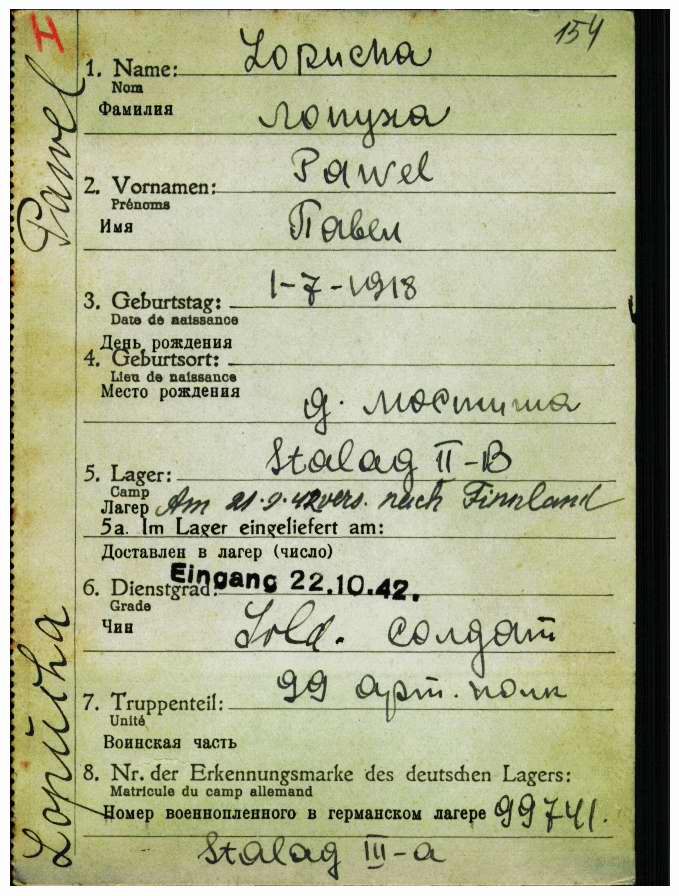 H
154
Pawel
Lopucha
1. Name:
Nom
Фамилия
Lopucha
Лопуха
2. Vornamen:
Prénoms
Имя
Pawel
Павел
3. Geburtstag:
Date de naissance
День рождения
1-7-1918
4. Geburtsort:
Lieu de naissance
Место рождения
д.
5. Lager: Stalag II-B
Camp
Лагер Am 21.9.42 vers. nach Finnland
5a. Im Lager eingeliefert am:
Доставлен в лагер (число)
Eingang 22.10.42.
6. Dienstgrad:
Grade
Чин
Sold. солдат
7. Truppenteil: 99 арт. полк
Unité
Воинская часть
8. Nr. der Erkennungsmarke des deutschen Lagers:
Matricule du camp allemand
Номер военнопленного в германском лагере 99741.
Stalag III-a